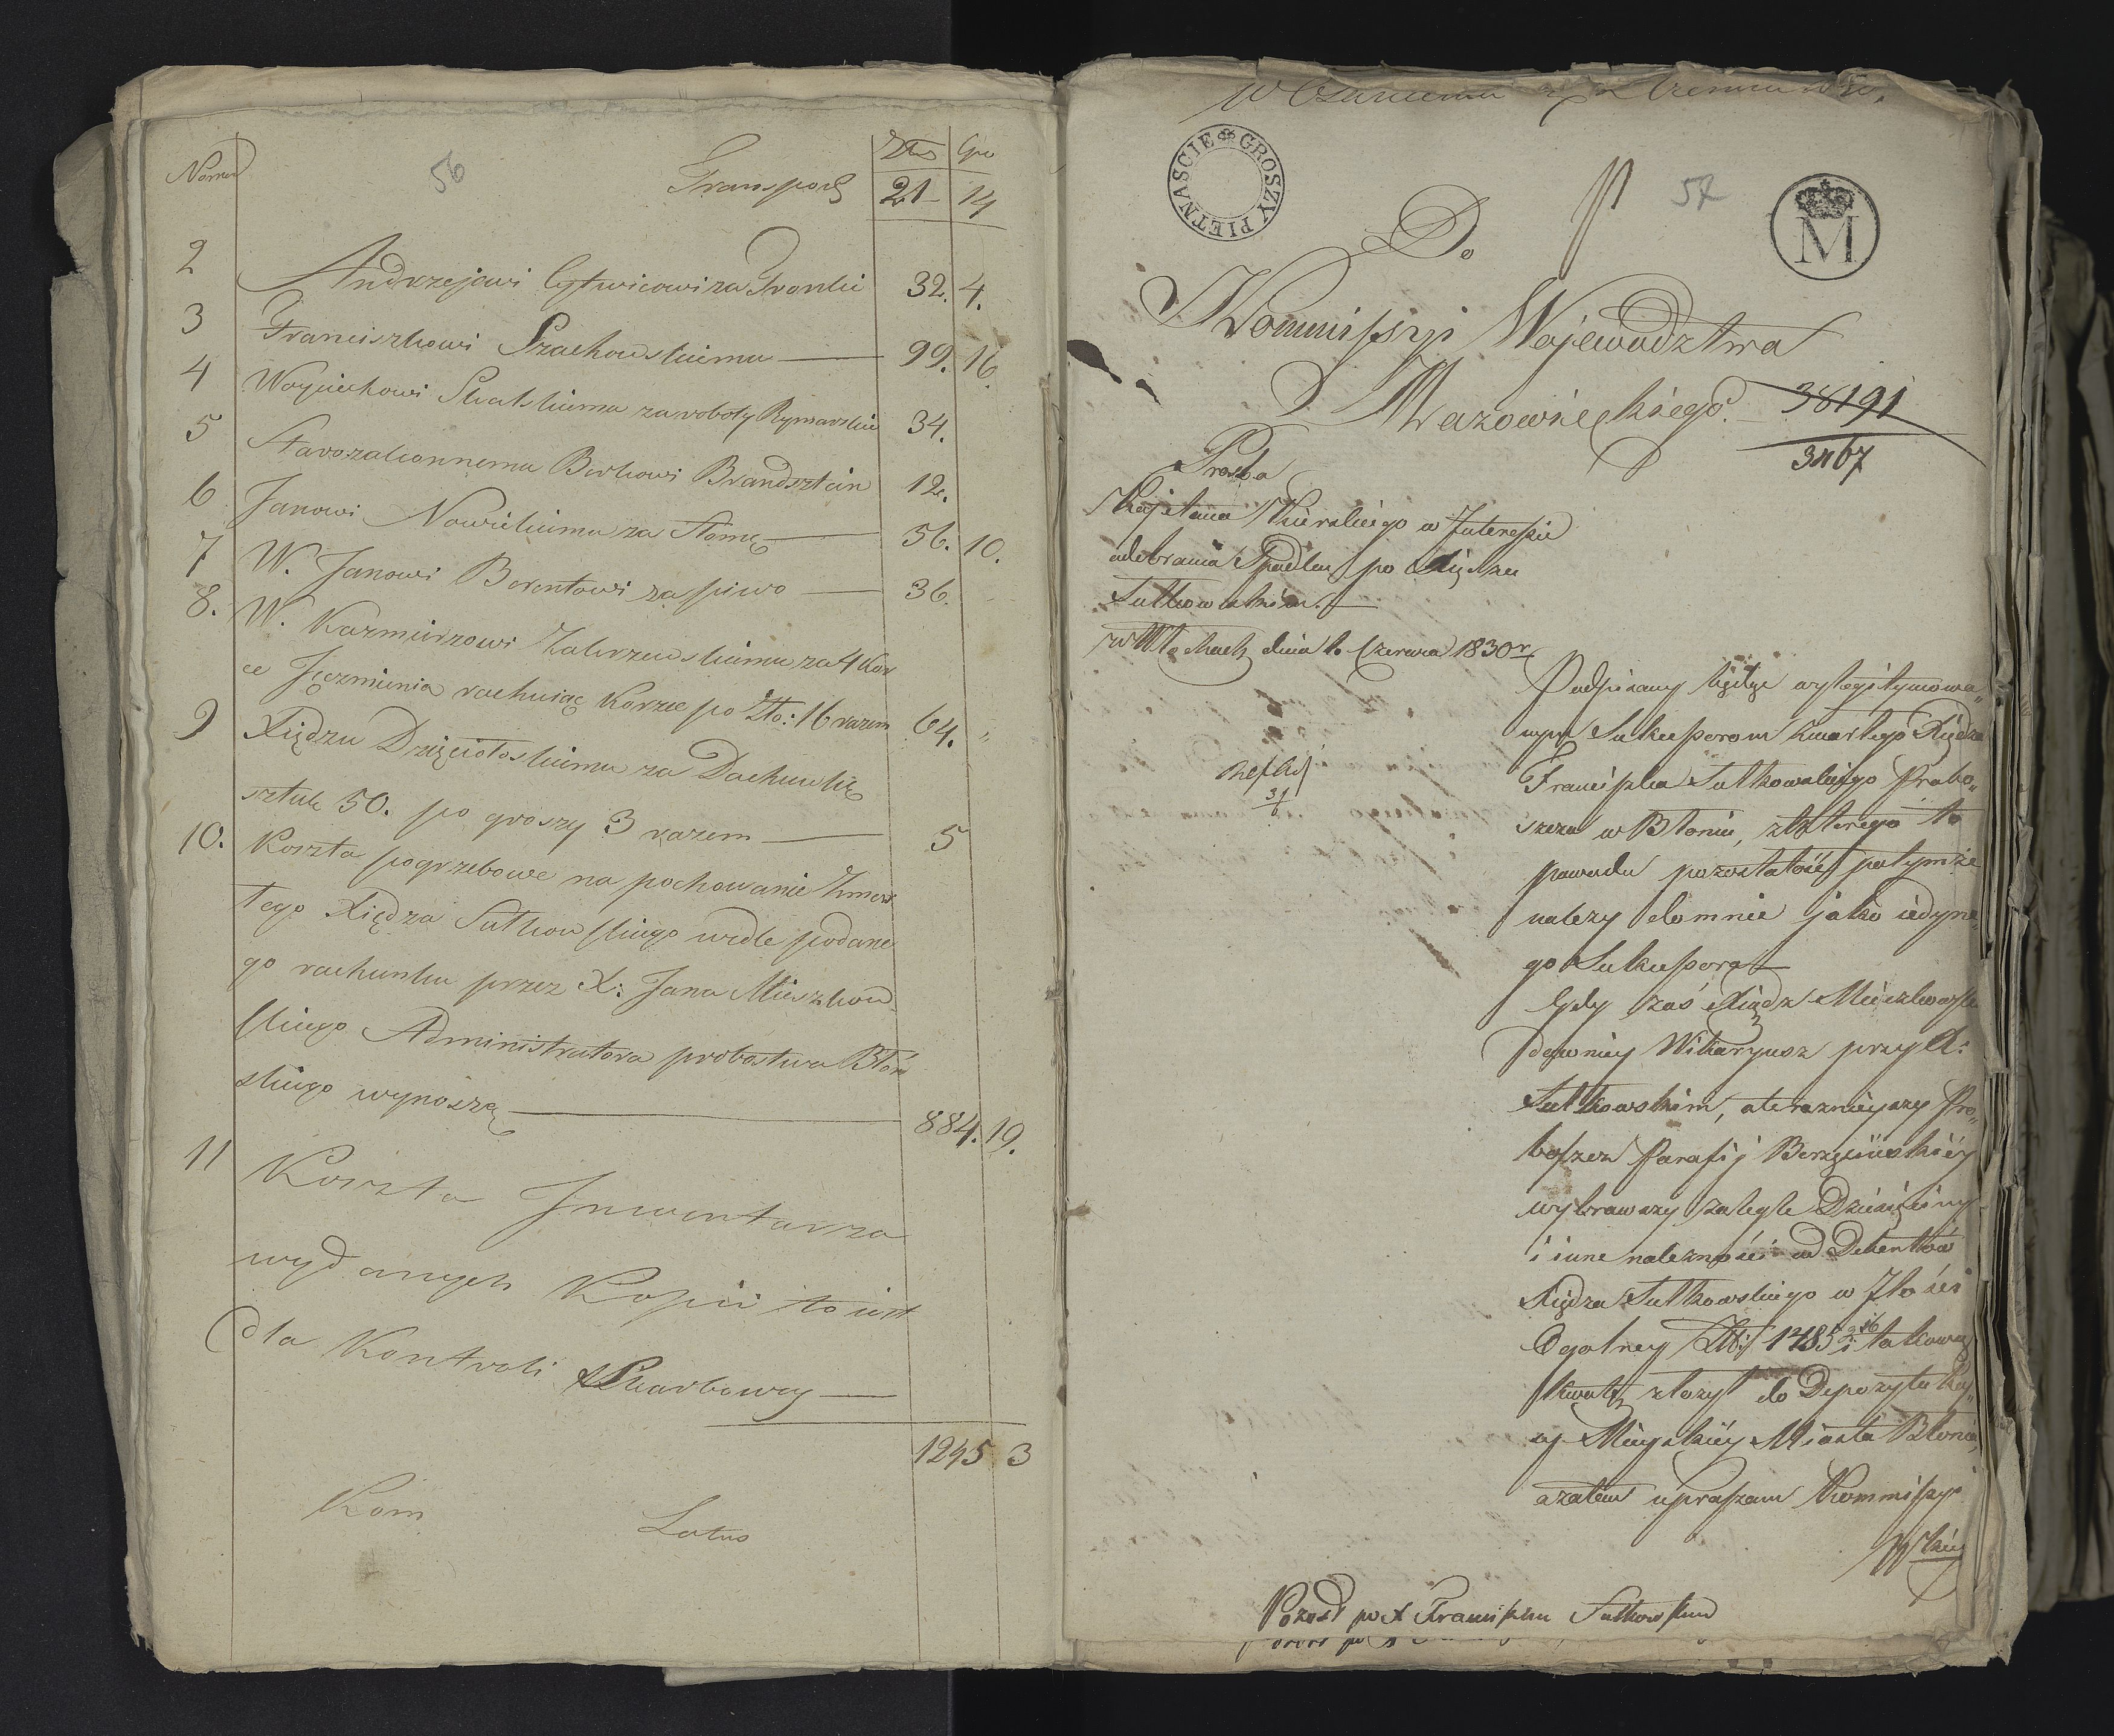 Numer
56
Transport
Złp
Gro
21
14
2
Andrzejowi za
32. 4.
3
Franciszkowi Szachowskiemu
99. 16.
4
Woyciechowi za roboty Rymarskie
34.
5
Starozakonnemu Berkowi Brandsztein
12.
6
Janowi Nowickiemu za Słomę
56. 10.
7
W. Janowi Berentowi za piwo
36.
8.
W. Kazmierzowi Zakrzewskiemu za 4 Kor
ce Jęczmienia rachuiąc Korzec po Złto: 16 razem
64. "
9
Xiędzu Dzięciołoskiemu za Dachówkę
sztuk 50. po groszy 3 razem
5
10.
Koszta pogrzebowe na pochowanie Zmar
łego Xiędza Sutkowskiego wedle podane
go rachunku przez X: Jana Mieszkow
skiego Administratora probostwa Błoń
skiego wynoszą
884. 19.
11
Koszta Inwentarza
wydanych Kopii to iest
dla Kontroli Skarbowey
1245 3
Latus
PIETNASCIE GROSZY
57
M
Do
Kommissyi Województwa
Mazowieckiego.
38191
3467
Prosba
Kajetana w Interessie
odebrania Spadku po Xiędzu
Sutkowskim.
dnia 1. Czerwca 1830 r
Podpisany będąc wylegitymowa„
nym Sukcessorem zmarłego Xiędza
Franciszka Sutkowskiego Probo„
szcza w Błoniu, z którego to
powodu pozostałość po tymże
należy do mnie jako iedyne„
go Sukcessora
Gdy zaś Xiądz Mieszkowski
dawniey Wikaryusz przy X:
Sutkowskim, a teraznieyszy Pro„
boszcz Parafij
wybrawszy zaległe Dziesięciny
i inne należności od Debentów
Xiędza Sutkowskiego w Ilości
Ogolney Złt: 1485 takową
kwotę złożył do Depozytu Kas„
sy Mieyskiey Miasta Błonia,
a zatem upraszam Kommissyi
Pozost po X Franciszku Sutkowskim